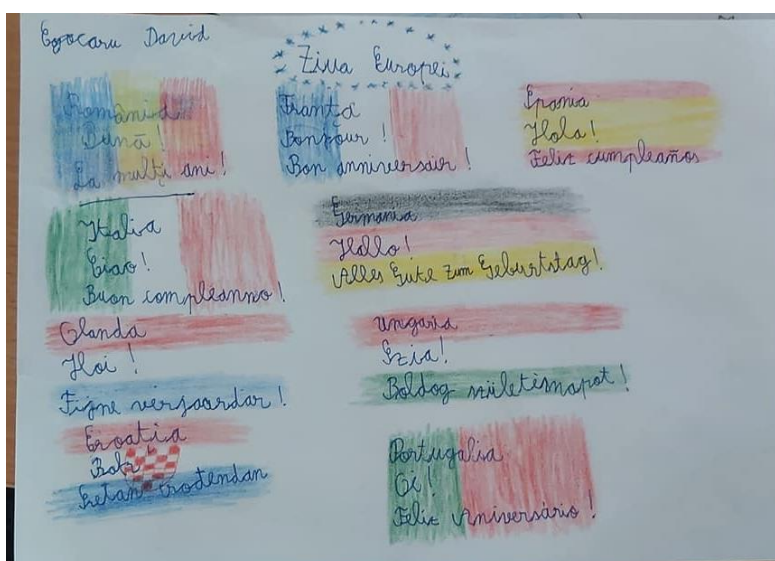 Egocaru David
Ziua Europei
România
Bună!
La mulți ani!
Franța
Bonjour!
Bon anniversair!
Spania
Hola!
Feliz cumpleaños
Italia
Ciao!
Buon compleanno!
Germania
Hallo!
Alles Gute zum Geburtstag!
Olanda
Hoi!
Fijne verjaardar!
Ungaria
Szia!
Boldog születésnapot!
Croatia
Sretan rođendan
Portugalia
Oi!
Feliz Aniversário!